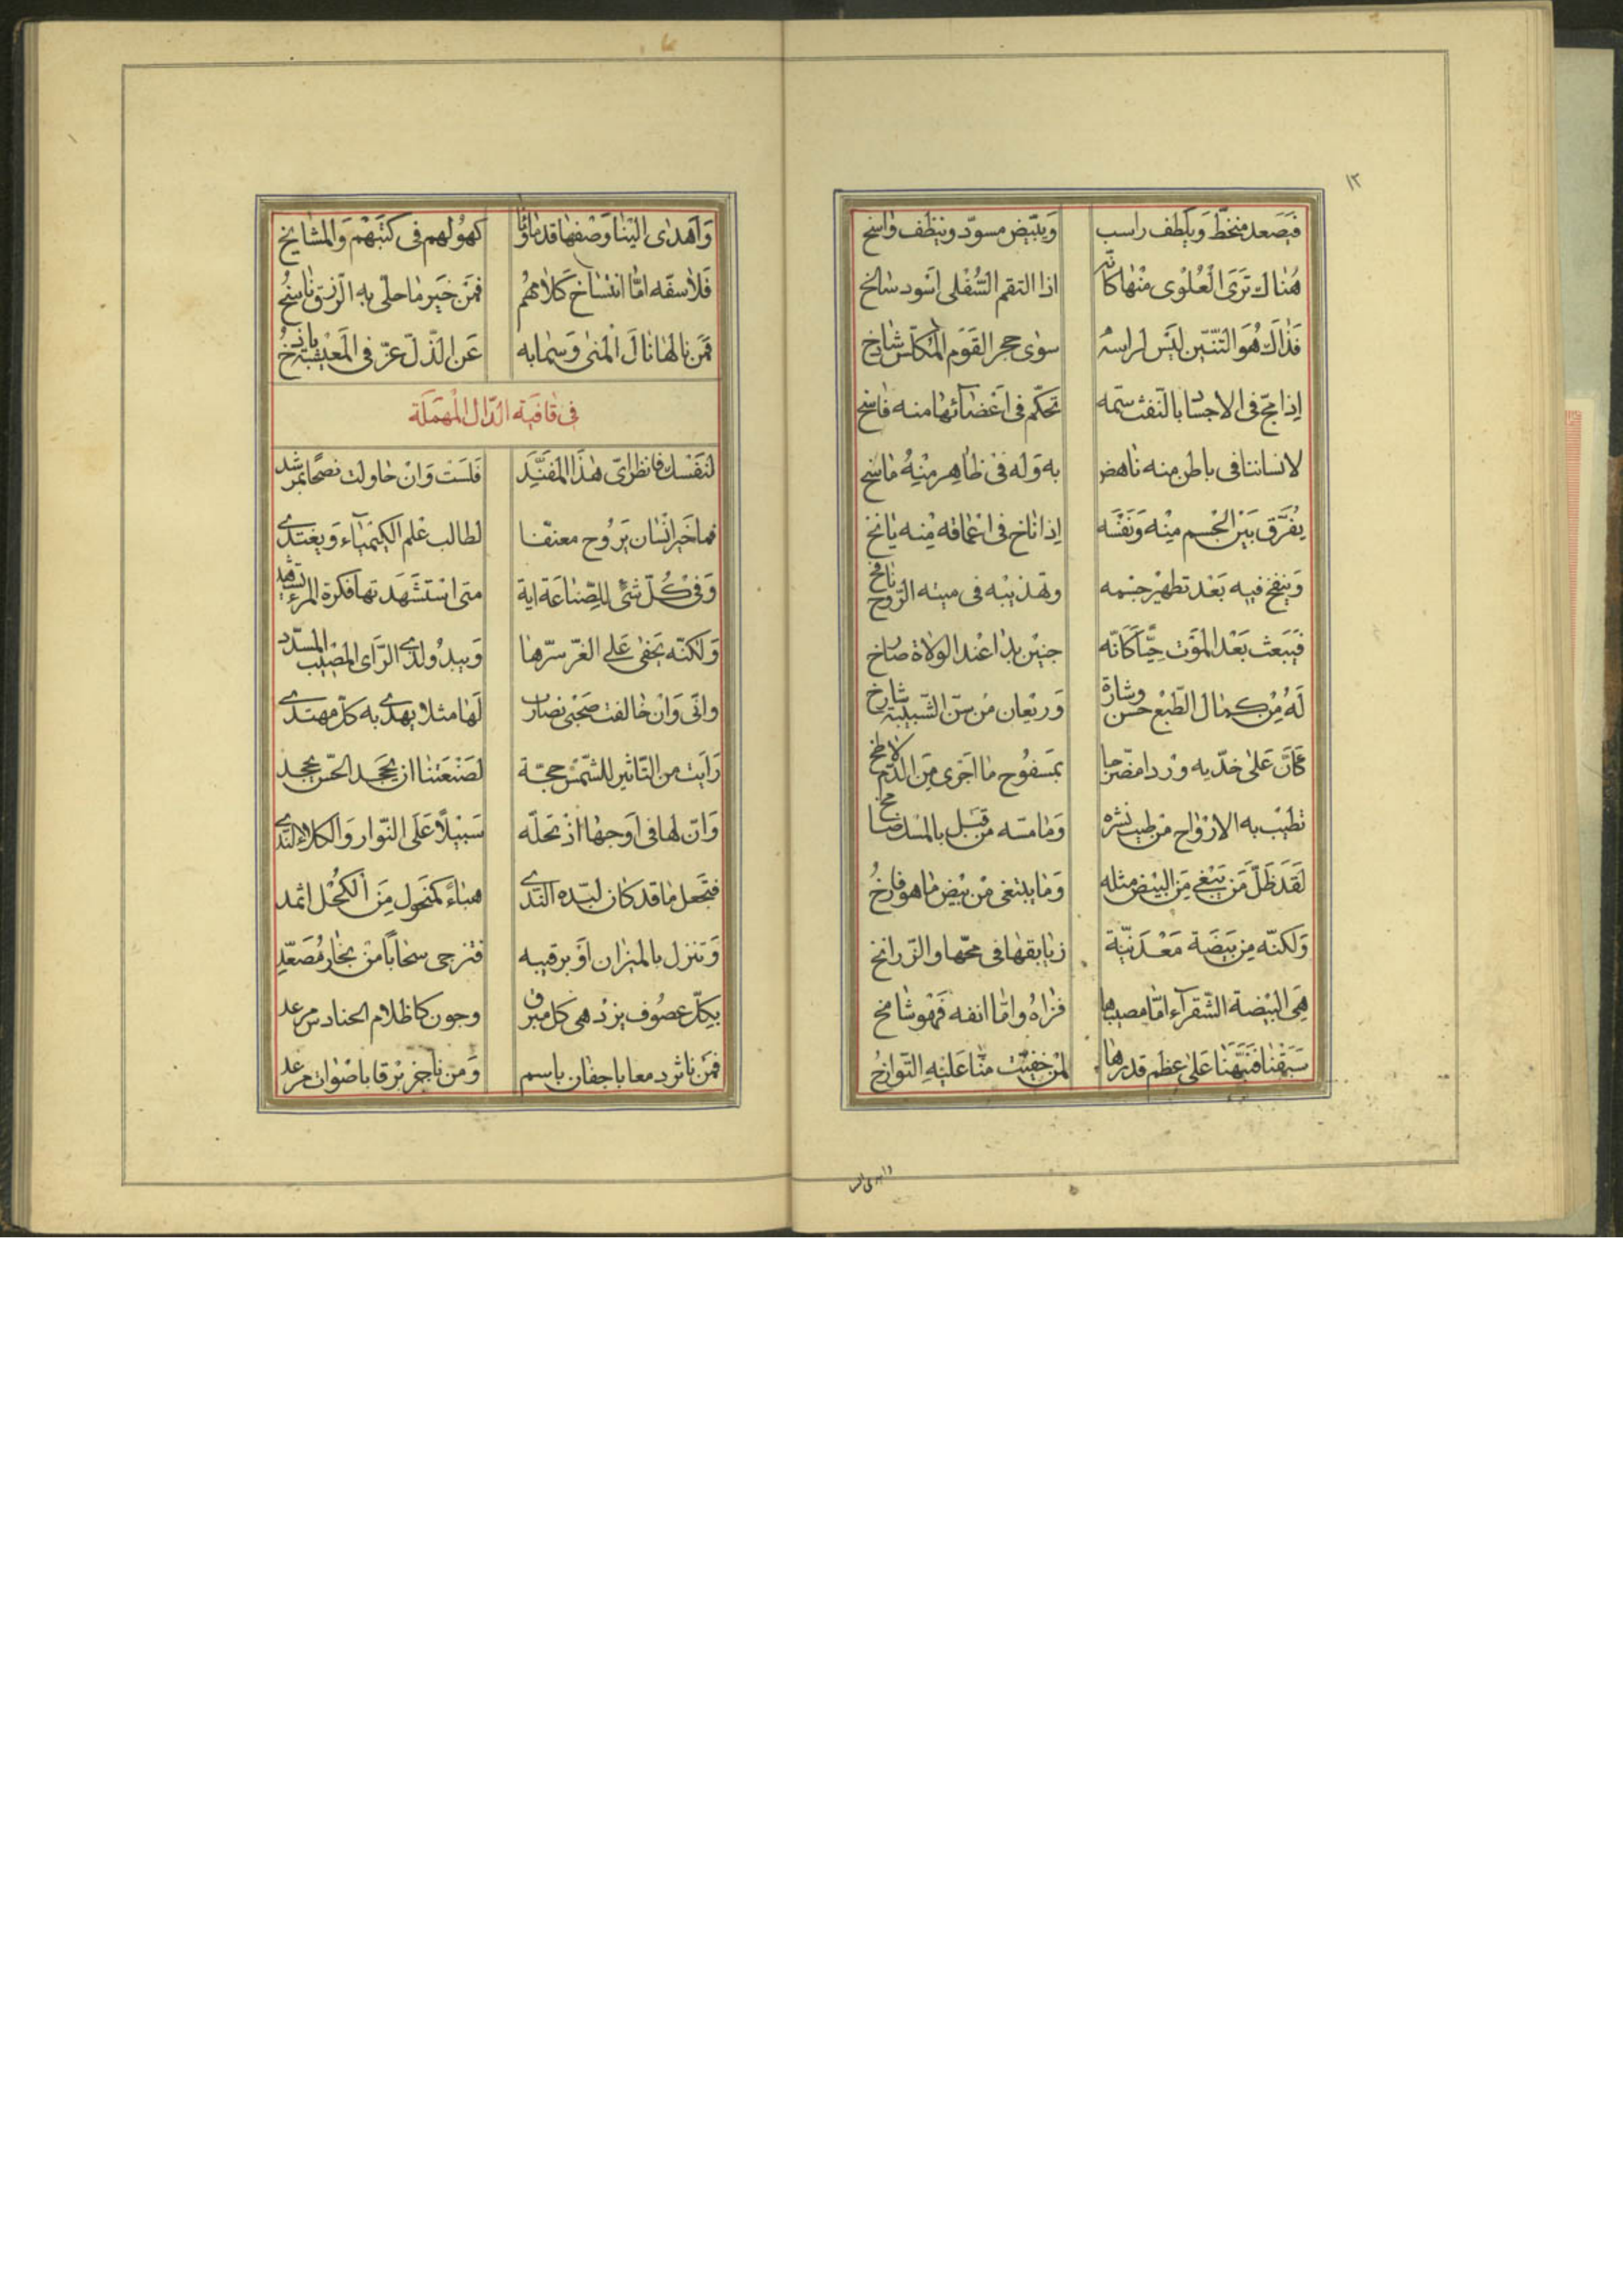 ١٢
فيصعد منخطّ ويلطف راسب ويبيّض مسودّ وينظف واسخ
هناك ترى العلوى منها كانّه اذا التقم السّفلى اسود شالخ
فذاك هو التنّين ليس لراسه سوى حجر القوم المكلّس شادخ
اذا مجّ فى الاجساد بالنّفث سمّه تحكّم فى اعضآئها منه فاسخ
لانساننا فى باطن منه ناهض به وله فى ظاهر منه ماسخ
يفرّق بين الجسم منه ونفسه اذا ناخ فى اعماقه منه يانخ
وينفخ فيه بعد تطهير جسمه وتهذيبه فى ميته الرّوح نافخ
فيبعث بعد الموت حيّا كانّه جنين بدا عند الولادة صارخ
له من كمال الطّبع حسن وشارة وريعان من سنّ الشبيبة شارخ
كانّ على خدّيه وردا مضرّجا بمسفوح ما اجرى من الدّم لاطخ
تطيب به الارواح من طيب نشره وما مسّه من قبل بالمسك ضامخ
لقد ظلّ من يبغى من البيض مثله وما يبتغى من بيض ما هو فارخ
ولكنّه من بيضة معدنيّة زيابقها فى محّها والزّرانخ
هى البيضة الشّقرآء امّا مصيبها فزاه وامّا انفه فهو شامخ
سبقنا فنبّهنا على عظم قدرها لمن خفيت منّا عليه التّوارخ
واهدى الينا وصفها قدماؤنا كهولهم فى كتبهم والمشايخ
فلاسفه امّا انتساخ كلامهم فمن خير ما حلّى به الرّق ناسخ
فمن نالها نال المنى وسما به عن الذّلّ عزّ فى المعيشة باذخ
فى قافية الدّال المهملة
لنفسك فانظر اىّ هذا المفنّد فلست وان حاولت نصحا بمرشد
فما خير انسان يروح معنّفا لطالب علم الكيميآء ويغتدى
وفى كلّ شئ للصّناعة اية متى استشهدتها فكرة المرء تشهد
ولكنّه يخفى على الغرّ سرّها ويبدو لذى الرّاى المصيب المسدّد
وانّى وان خالفت صحبى نصارب لها مثلا يهدى به كلّ مهتدى
رايت من التّاثير للشّمس حجّة لصنعتنا ان يجحد الحسّ يجحد
وانّ لها فى اوجها اذ تحلّه سبيلا على النّوار والكلاء النّدى
فتجعل ما قد كان لبّده النّدى هباء كمنحول من الكحل اثمد
وتنزل بالميزان او برقيبه فتزجى سحابا من بخار مصعّد
بكلّ عصوف يزدهى كلّ مبرق وجون كاظلام الحنادس مرعد
فمن ناثر دمعا باجفان باسم ومن ناجز برقا باصوات مرعد